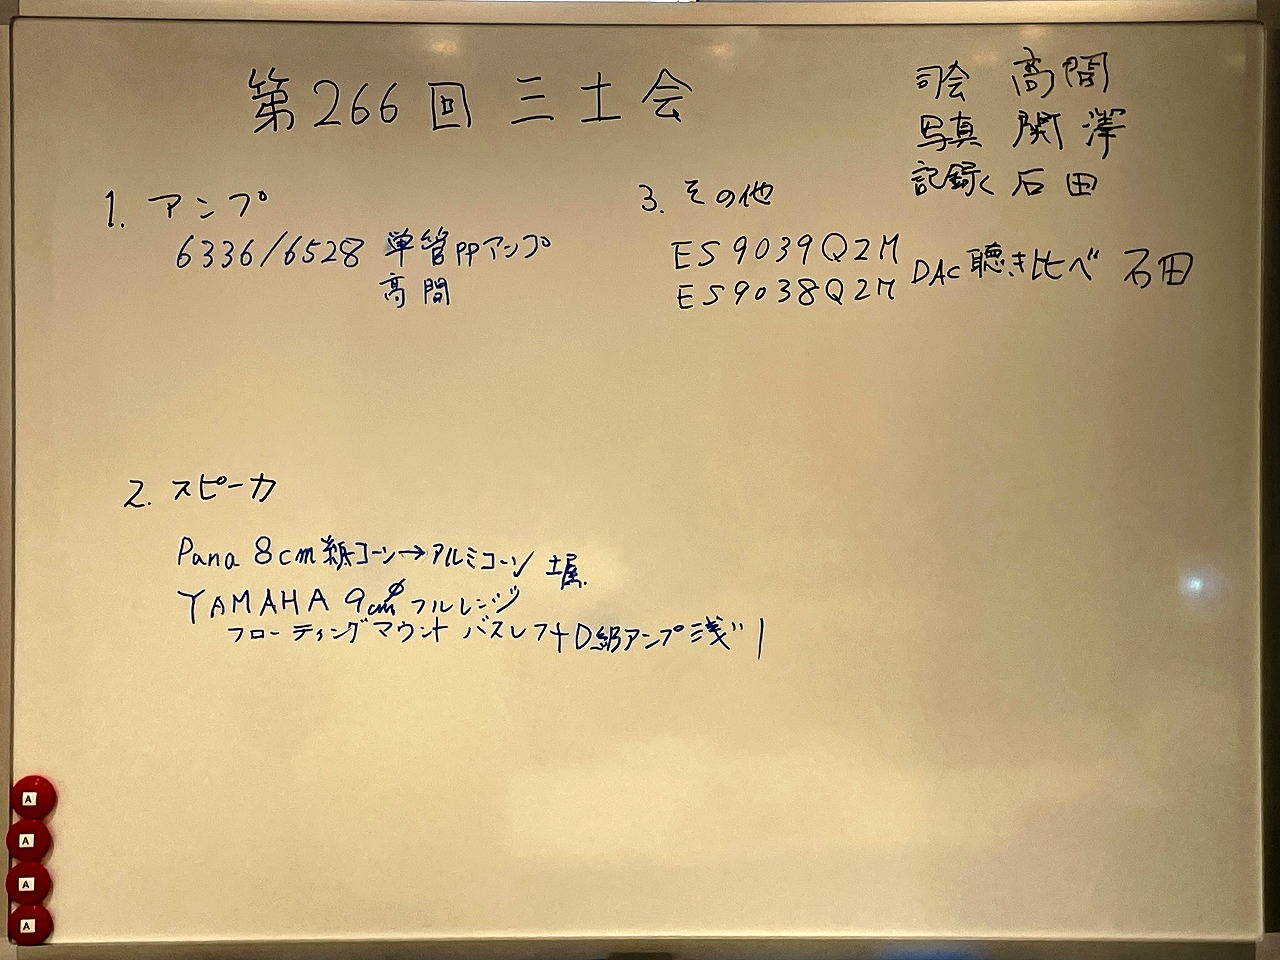 第266回 三土会
司会 高間
写真 関澤
記録 石田
1. アンプ
6336/6528 単管PPアンプ
高間
2. スピーカ
Pana 8cm 紙コーン→アルミコーン 土屋
YAMAHA 9cmφ フルレンジ
フローティングマウント バスレフ+D級アンプ 浅
3. その他
ES9039Q2M
ES9038Q2M DAC 聴き比べ 石田
A
A
A
A